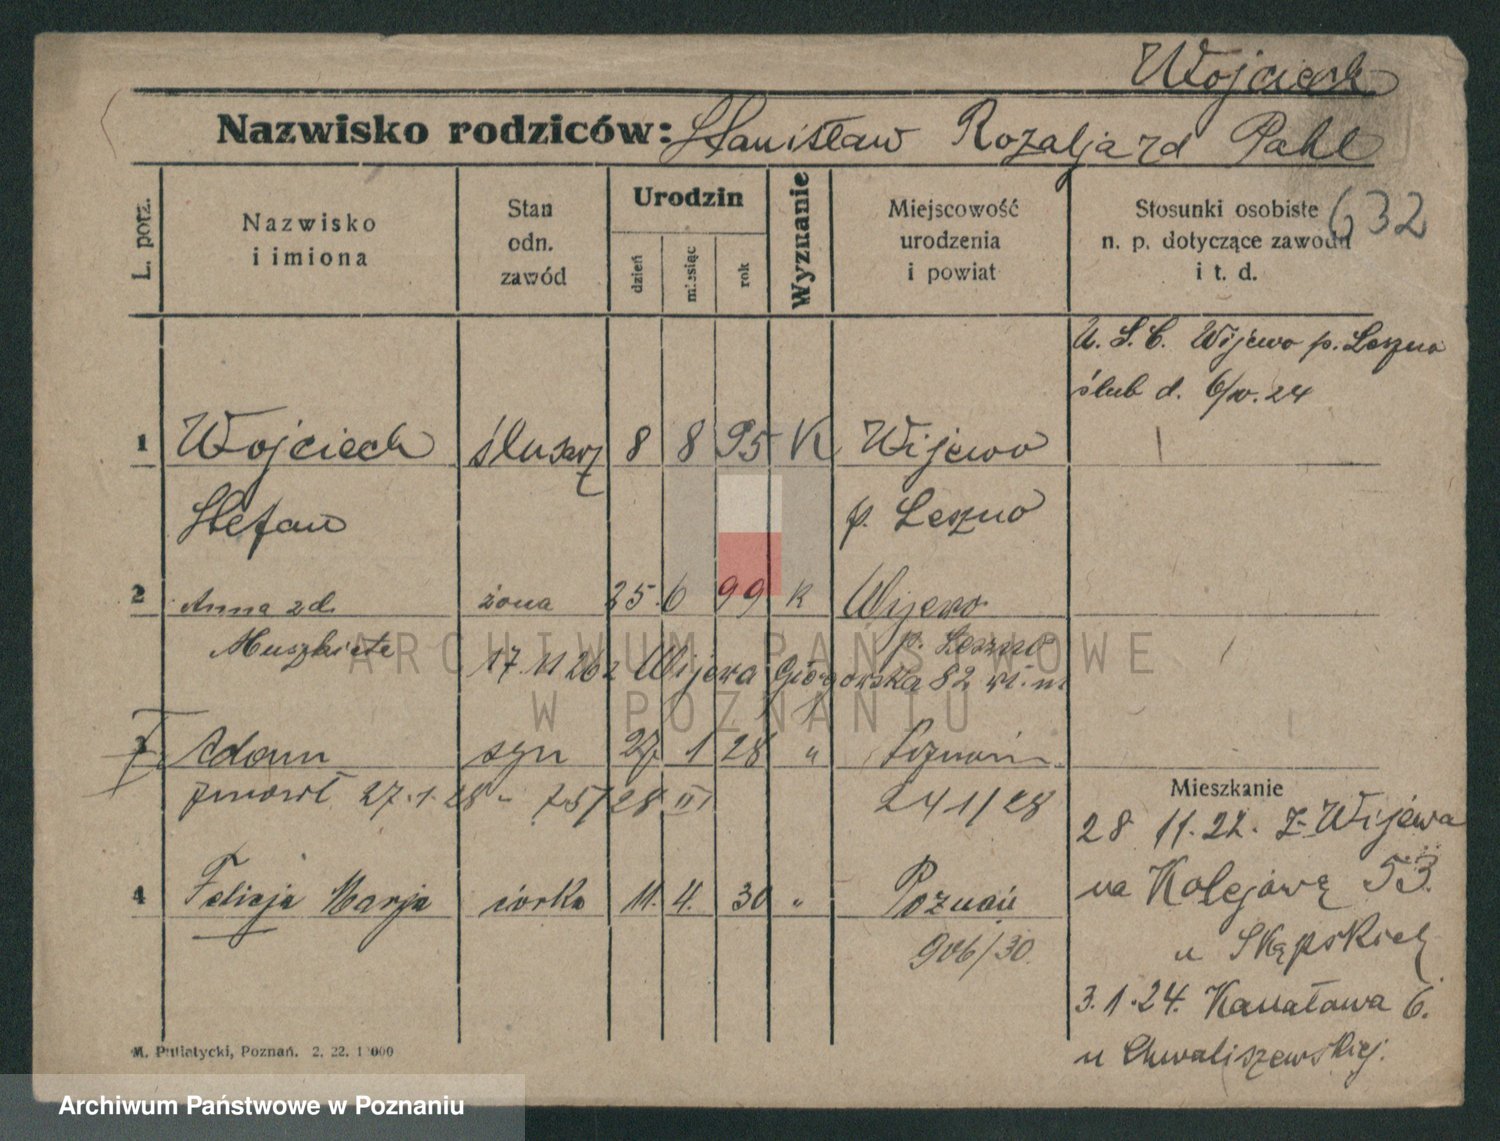 Wojciech
Nazwisko rodziców: Stanisław Rozalja zd Pahl
632
L. porz.
Nazwisko
i imiona
Stan
odn.
zawód
Urodzin
dzień
miesiąc
rok
Wyznanie
Miejscowość
urodzenia
i powiat
Stosunki osobiste
n. p. dotyczące zawodu
i t. d.
U. S. C. Wijewo p. Leszno
ślub d. 6/IV. 24
1 Wojciech ślusarz 8 8 95 K Wijewo
Stefan p. Leszno
2 Anna zd. żona 25. 6 99 K Wijewo
Muszkieta p. Leszno
17. 11 26 z Wijewa 82
3 Adam syn 27 1 28 " Poznań
zmarł 27. 1. 28 - 75/28 III 241/28
4 Felicja Marja córka 11. 4. 30 " Poznań
906/30.
Mieszkanie
28 11. 22. z Wijewa
na Kolejową 53.
u Skąpskich
3. 1. 24. Kanałowa 6.
u Chwaliszewskiej.
M. Putiatycki, Poznań. 2. 22. 1000
ARCHIWUM PAŃSTWOWE
W POZNANIU
Archiwum Państwowe w Poznaniu